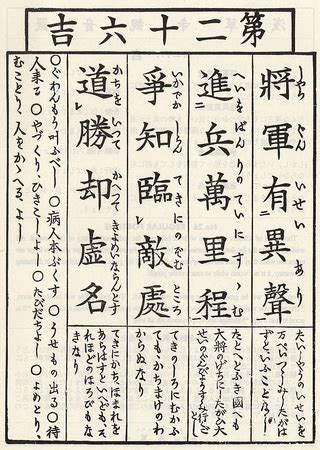 第二十六吉
將軍有二異聲一
しやうぐんいせいあり
たいしやうのいせいを
万ぺいつゝしみしたがは
ずといふことなし
進二兵萬里程一
へいをばんりのていにすゝむ
たとへとふき國へも
大将のげぢにしたがひ大
せいのぐんびやうすゝみ行
爭知臨レ敵處
いかでかしらんてきにのぞむところ
てきのしろにむかふ
ても、かちまけのわ
からぬなり
道レ勝却虚名
かちをいつてかへつてきよめいならんとす
てきにかち、ほまれを
あらはすといへども、そ
れほどのほろびもな
きなり
○ぐわんもう叶ふべし ○病人本ぶくす ○うせもの出る ○待
人来る ○やづくり、ひきこしよし ○たびだちよし ○よめとり、
むことり、人をかゝへる、よし